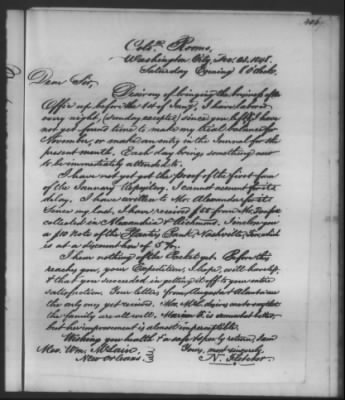 Colo. Rooms,
Washington City, Dec. 23, 1848.
Saturday Evening 8 O'clock.
Dear Sir,
Desirous of bringing the business of the
Office up before the 1st of Jany, I have labored
every night, (Sunday excepted) since you left. I have
not yet found time to make my trial balance for
November, or make an entry in the Journal for the
present month. Each day brings something new
to be immediately attended to.
I have not yet got the proof of the first form
of the January Repository. I cannot account for its
delay. I have written to Mr. Alexander for it.
Since my last, I have received
collected in Alexandria & Richmond. I enclose you
a $10 Note of the Planters Bank, Nashville, Ten. which
is at a discount here of 5 %.
I hear nothing of the Packet yet. Before this
reaches you, your Expedition, I hope, will have left,
& that you succeeded in getting it off to your entire
satisfaction. Your letter from
the only one yet received. Mrs. McL. desires me to say that
the family are all well. Marian F. is somewhat better,
but her improvement is almost imperceptible.
Wishing you health & a safe & speedy return, I am
Yours, most sincerely,
Rev. Wm. McLain,
New Orleans. La.
N. Fletcher.